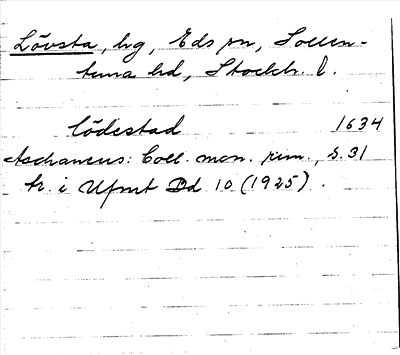 Lövsta, hg, Eds sn, Sollen-
tuna hd, Stockh. l.
Lödestad 1634
Aschaneus: Coll. mon. run., s. 31
tr. i Upmt Bd 10 (1925).